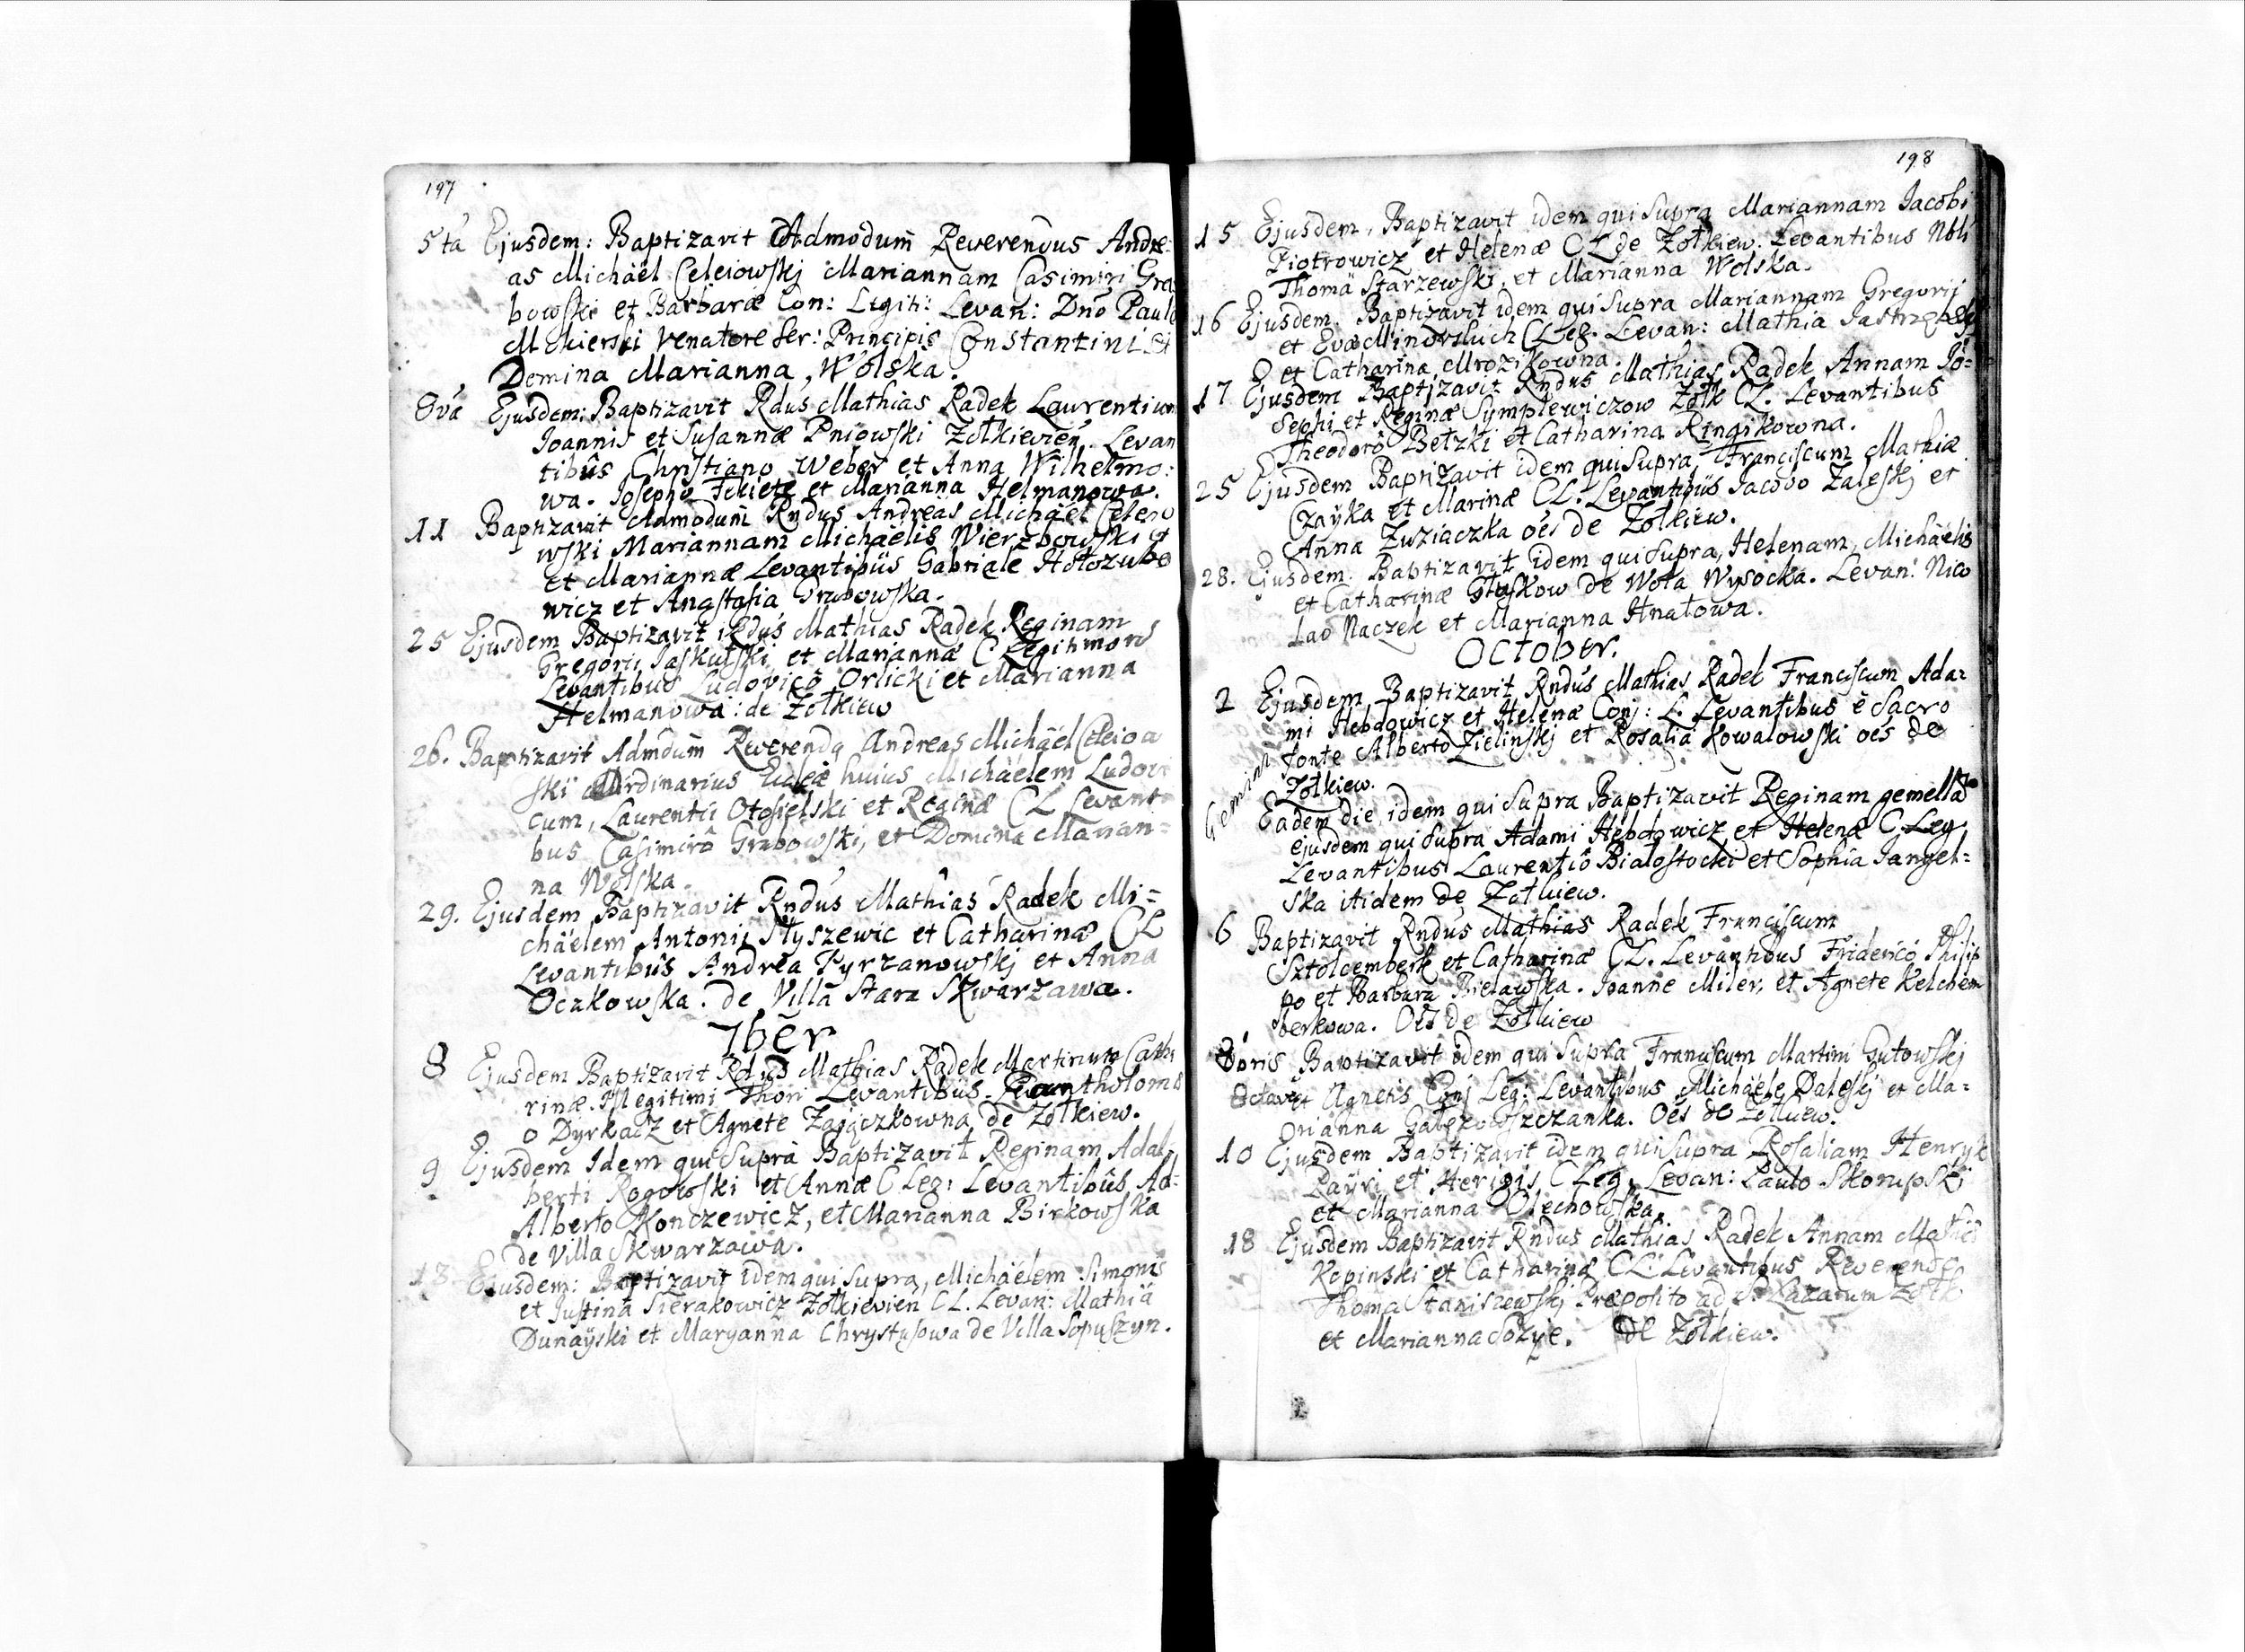 197
5ta Ejusdem: Baptizavit Admodum̄ Reverendus Andre-
as Michaël Celeiowskj Mariannam Casimiri Gra
bowski et Barbaræ Con: Legit: Levan: Dnō Paulo
Mckierski Venatore Ser: Principis Constantini et
Domina Marianna Wolska.
8va Ejusdem: Baptizavit Rdus Mathias Radek Laurentium
Joannis et Susannæ Pniowski Żołkievien. Levan
tibûs Christiano Weber et Anna Wilhelmo:
wa. Josepho Fekiete et Marianna Helmanowa.
11 Baptizavit Admodum̄ Rndus Andreas Michaël Celeio
wski Mariannam Michaëlis Wierzbowski
et Mariannæ Levantibüs Gabriele Hołozubo
wicz et Anastasia Grabowska.
25 Ejusdem Baptizavit Rdus Mathias Radek Reginam
Gregorii Jaskulski et Mariannæ C Legitimorū
Levantibus Ludovicô Orlicki et Marianna
Helmanowa: de Żołkiew
26. Baptizavit Admdum̄ Reverendq Andreas Michaël Celeiow
ski Ordinarius Eccleæ huius Michaëlem Ludovi
cum, Laurentii Otosielski et Reginæ CL Levant
bus Casimirô Grabowski, et Domina Marian=
na Wolska.
29. Ejusdem Baptizavit Rndus Mathias Radek Mi=
chäelem Antonij Słyszewic et Catharinæ CL
Levantibûs Andrea Pyrzanowskj et Anna
Oczkowska. de Villa Stara Skwarzawa.
7bēr
8 Ejusdem Baptizavit Rdus Mathias Radek Martinum Catha
rinæ Illegitimi Thori Levantibus Bartholomæ
o Dyrkacz et Agnete Zajączkowna de Żołkiew.
9 Ejusdem Idem qui Supra Baptizavit Reginam Adal
berti Rogowski et Annæ C Leg: Levantibûs Ad=
Alberto Konczewicz, et Marianna Birkowska
de Villa Skwarzawa.
13 Ejusdem: Baptizavit idem qui Supra, Michäelem Simonis
et Justina Sierakowicz Żołkievien CL. Levan: Mathiä
Dunaÿski et Maryanna Chrystusowa de Villa Sopuszyn.
198
15 Ejusdem, Baptizavit idem qui Supra Mariannam Jacobi
Piotrowicz et Helenæ CL de Żołkiew. Levantibus Nbli
Thomä Starzewski, et Marianna Wolska.
16 Ejusdem. Baptizavit idem qui Supra Mariannam Gregorij
et Evæ C Leg: Levan: Mathia
et Catharina Mrozikowna.
17 Ejusdem Baptizavit Rndus Mathias Radek Annam Jo=
sephi et Reginæ Symplewiczow Żołk CL. Levantibus
Theodorô Betzki et Catharina Ringikowna.
25 Ejusdem Baptizavit idem qui Supra, Franciscum Mathiæ
Czaÿka et Marinæ CL. Levantibüs Jacobo Zaleskj et
Anna Zuziaczka oēs de Żołkiew.
28. Ejusdem. Baptizavit idem qui Supra, Helenam, Michäelis
et Catharinæ Głuskow de Wola Wysocka. Levan: Nico
lao Naczek et Marianna Hnatowa.
October.
2 Ejusdem Baptizavit Rndus Mathias Radek Franciscum Ada=
mi Hebdowicz et Helenæ Conj: L: Levantibus è Sacro
fonte Alberto Zielinskj et Rosalia Kowalowski oēs de
Żołkiew.
Gemini
Eadem die, idem qui Supra Baptizavit Reginam gemellā
ejusdem qui Supra Adami Hebdowicz et Helenæ C. Leg.
Levantibus Laurentiô Białostocki et Sophia Jangel=
ska itidem de Żołkiew.
6 Baptizavit Rndus Mathias Radek Franciscum
Sztolcemberk et Catharinæ CL. Levantibus Friderico Philip
po et Barbara Bielawska. Joanne Miler, et Agnete Kelchem
berkowa. Oēs de Żołkiew
8 Baptizavit idem qui Supra Franciscum Martini Gutowskj
Octavæ Agnetis Conj Leg: Levantibus Michäele Daleskj et Ma=
rianna Oēs de Żołkiew.
10 Ejusdem Baptizavit idem qui Supra Rosaliam Henryk
Paÿri et C Leg. Levan: Paulo Skorupski
et Marianna Olechowska.
18 Ejusdem Baptizavit Rndus Mathias Radek Annam Mathiæ
Kepinski et Catharinæ CL: Levantibus Reverendo
Thoma Staniszewskj Præposito ad S. Lazarum Żołk
et Marianna Sozye. de Żołkiew.